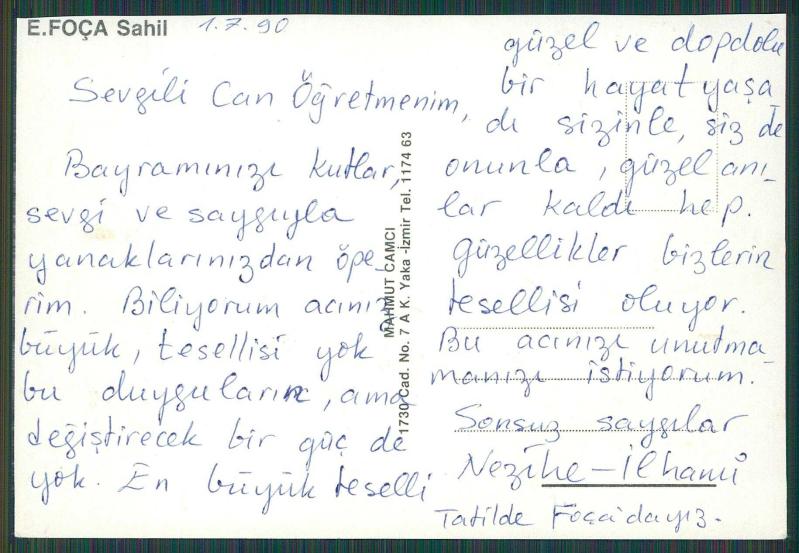 E.FOÇA Sahil
1.7.90
Sevgili Can Öğretmenim,
Bayramınızı kutlar,
sevgi ve saygıyla
yanaklarınızdan öpe-
rim. Biliyorum acınız
büyük, tesellisi yok
bu duyguların, ama
değiştirecek bir güç de
yok. En büyük teselli
MAHMUT CAMCI
1730 Cad. No. 7 A K. Yaka -İzmir Tel. 1174 63
güzel ve dopdolu
bir hayat yaşa
dı sizinle, siz de
onunla, güzel anı-
lar kaldı hep.
Güzellikler bizlerin
tesellisi oluyor.
Bu acınızı unutma-
manızı istiyorum.
Sonsuz saygılar
Nezihe-İlhami
Tatilde Foça'dayız.